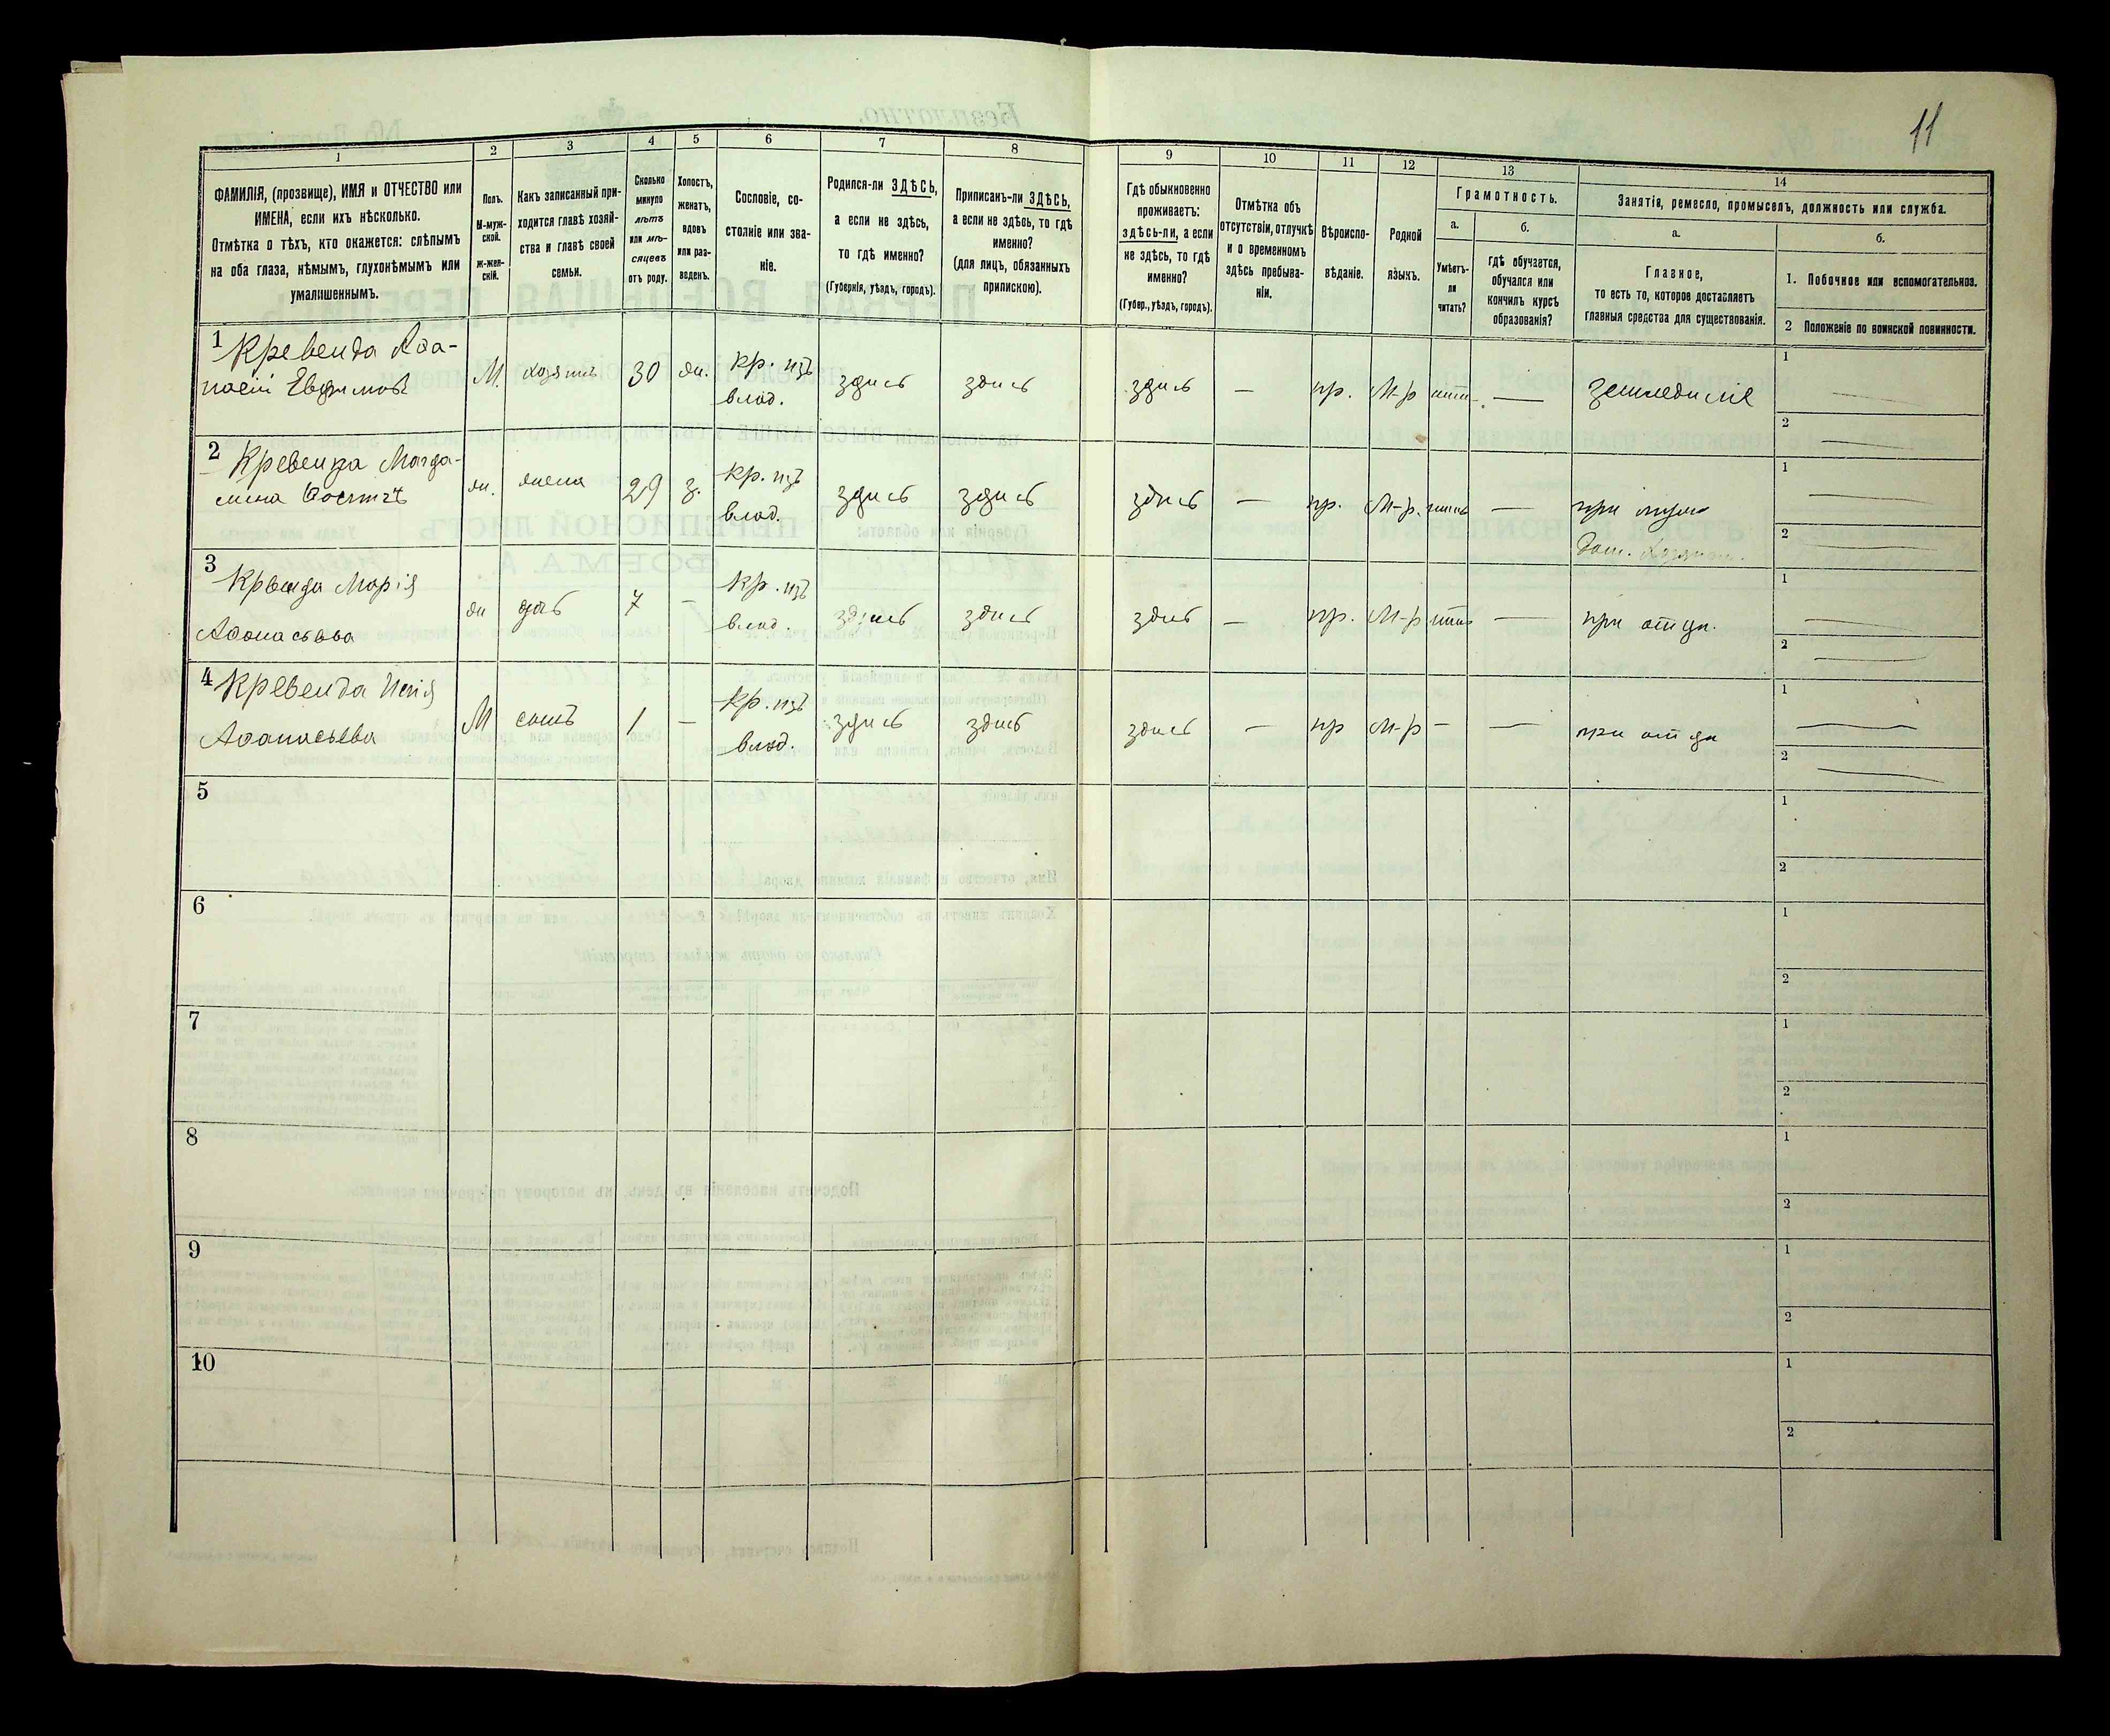 11
1
2
3
4
5
6
7
8
9
10
11
12
13
14
ФАМИЛІЯ, (прозвище), ИМЯ и ОТЧЕСТВО или
ИМЕНА, если ихъ нѣсколько.
Отмѣтка о тѣхъ, кто окажется: слѣпымъ
на оба глаза, нѣмымъ, глухонѣмымъ или
умалишеннымъ.
Полъ.
М-муж-
ской.
ж-жен-
скій.
Какъ записанный при-
ходится главѣ хозяй-
ства и главѣ своей
семьи.
Сколько
минуло
лѣтъ
или мѣ-
сяцевъ
отъ роду.
Холостъ,
женатъ,
вдовъ
или раз-
веденъ.
Сословіе, со-
стояніе или зва-
ніе.
Родился-ли ЗДѢСЬ,
а если не здѣсь,
то гдѣ именно?
(Губернія, уѣздъ, городъ).
Приписанъ-ли ЗДѢСЬ,
а если не здѣсь, то гдѣ
именно?
(для лицъ, обязанныхъ
припискою).
Гдѣ обыкновенно
проживаетъ:
здѣсь-ли, а если
не здѣсь, то гдѣ
именно?
(Губер., уѣздъ, городъ).
Отмѣтка объ
отсутствіи, отлучкѣ
и о временномъ
здѣсь пребыва-
ніи.
Вѣроиспо-
вѣданіе.
Родной
языкъ.
Грамотность.
а.
Умѣетъ-
ли
читать?
б.
гдѣ обучается,
обучался или
кончилъ курсъ
образованія?
Занятія, ремесло, промыселъ, должность или служба.
а.
Главное,
то есть то, которое доставляетъ
главныя средства для существованія.
б.
1. Побочное или вспомогательное.
2 Положеніе по воинской повинности.
1 Кревенда Аѳа-
насій Евфимовъ
М. хозяинъ 30 жн. кр. изъ
влад.
здись здись здись — пр. М-р нит — земледиліе
1
2
2 Кревенда Магда-
лина
жн. жена 29 з. кр. изъ
влад.
здись здись здись — пр. М-р. нит — при мужи
1
2
3 Марія
Аѳонасьева
жн дочь 7 — кр. изъ
влад.
здись здись здись — пр. М-р нит — при отци.
1
2
4 Кревенда
Аѳанасьева
М сынъ 1 — кр. изъ
влад.
здись здись здись — пр М-р — — при отци
1
2
5
1
2
6
1
2
7
1
2
8
1
2
9
1
2
10
1
2